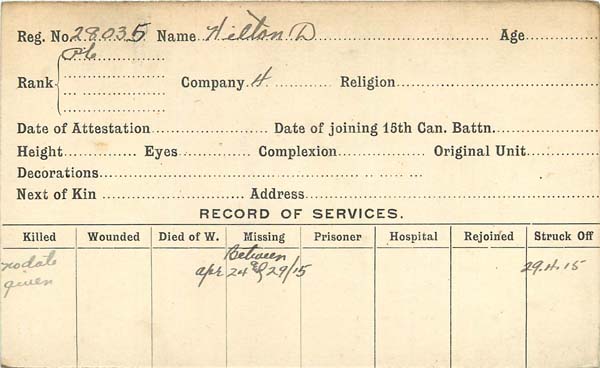 Reg. No. 28035 Name Hilton D Age
Rank Pte Company H. Religion
Date of Attestation Date of joining 15th Can. Battn.
Height Eyes Complexion Original Unit
Decorations
Next of Kin Address
RECORD OF SERVICES.
Killed Wounded Died of W. Missing Prisoner Hospital Rejoined Struck Off
no date given Between apr 24 & 29/15 29.4.15